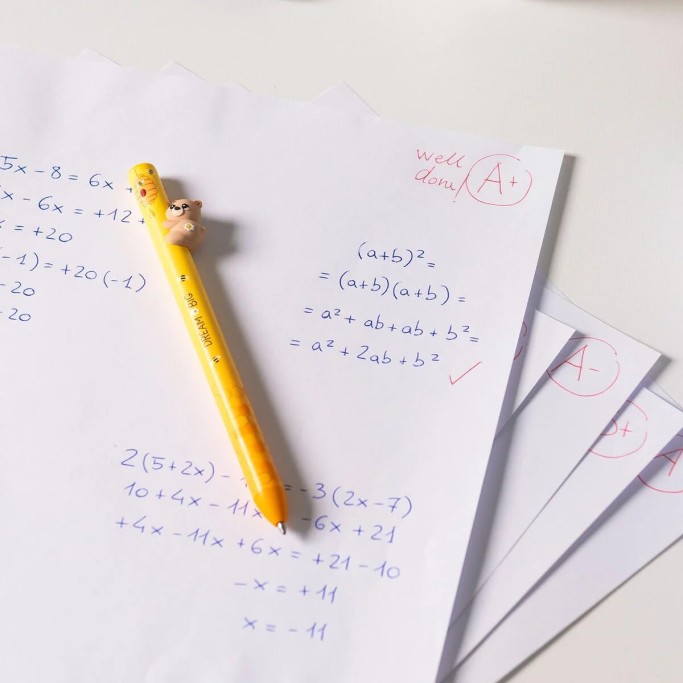 5x - 8 = 6x +
x - 6x = +12 +
= +20
-1) = +20 (-1)
-20
-20
well
done! A+
(a+b)² =
= (a+b)(a+b) =
= a² + ab + ab + b² =
= a² + 2ab + b²
DREAM BIG
2(5+2x) - = -3(2x-7)
10 + 4x - 11x -6x + 21
+4x - 11x + 6x = +21 - 10
-x = +11
x = -11
A-
A